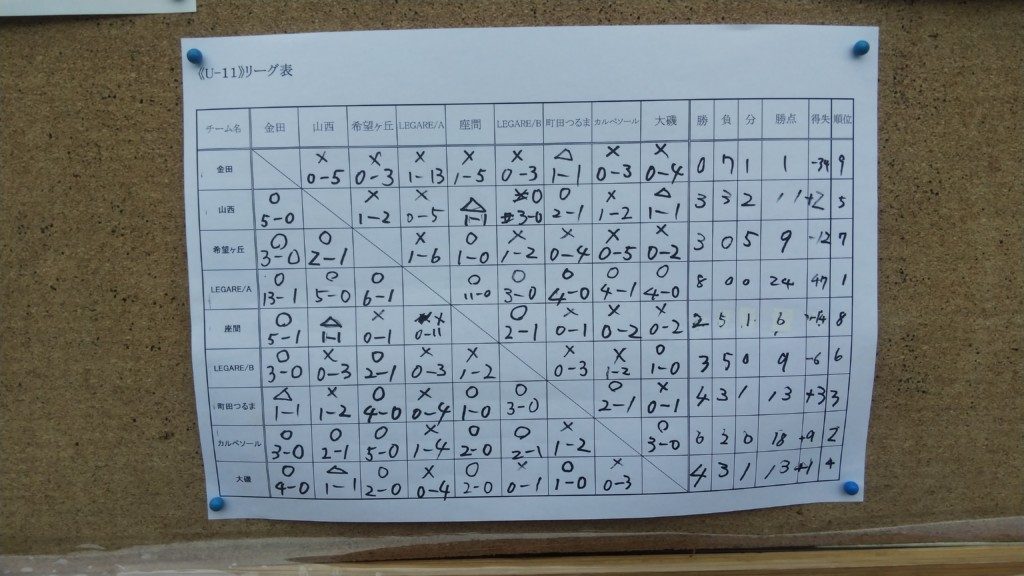 《U-11》リーグ表
チーム名 金田 山西 希望ヶ丘 LEGARE/A 座間 LEGARE/B 町田つるま カルペソール 大磯 勝 負 分 勝点 得失 順位
金田 × 0-5 × 0-3 × 1-13 × 1-5 × 0-3 △ 1-1 × 0-3 × 0-4 0 7 1 1 -34 9
山西 ○ 5-0 × 1-2 × 0-5 △ 1-1 ○ 3-0 ○ 2-1 × 1-2 △ 1-1 3 3 2 11 +2 5
希望ヶ丘 ○ 3-0 ○ 2-1 × 1-6 ○ 1-0 × 1-2 × 0-4 × 0-5 × 0-2 3 0 5 9 -12 7
LEGARE/A ○ 13-1 ○ 5-0 ○ 6-1 ○ 11-0 ○ 3-0 ○ 4-0 ○ 4-1 ○ 4-0 8 0 0 24 47 1
座間 ○ 5-1 △ 1-1 × 0-1 × 0-11 ○ 2-1 × 0-1 × 0-2 × 0-2 2 5 1 6 -14 8
LEGARE/B ○ 3-0 × 0-3 ○ 2-1 × 0-3 × 1-2 × 0-3 × 1-2 ○ 1-0 3 5 0 9 -6 6
町田つるま △ 1-1 × 1-2 ○ 4-0 × 0-4 ○ 1-0 ○ 3-0 ○ 2-1 × 0-1 4 3 1 13 +3 3
カルペソール ○ 3-0 ○ 2-1 ○ 5-0 × 1-4 ○ 2-0 ○ 2-1 × 1-2 ○ 3-0 6 2 0 18 +9 2
大磯 ○ 4-0 △ 1-1 ○ 2-0 × 0-4 ○ 2-0 × 0-1 ○ 1-0 × 0-3 4 3 1 13 +1 4